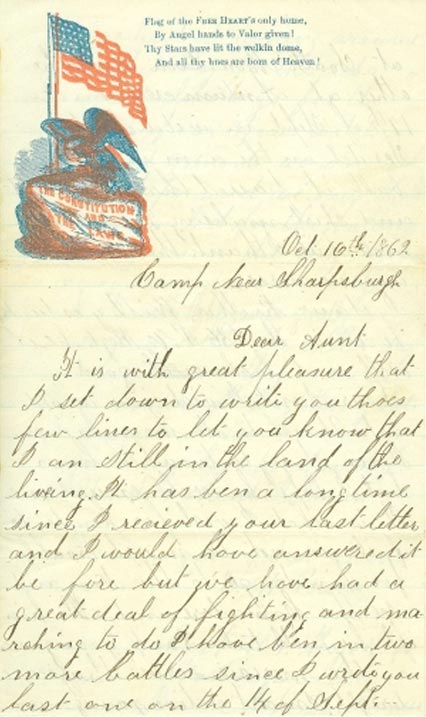 Flag of the FREE HEART'S only home,
By Angel hands to Valor given!
Thy Stars have lit the welkin dome,
And all thy hues are born of Heaven!
THE CONSTITUTION
AND
THE LAWS
Oct 16th 1862
Camp Near Sharpsburgh
Dear Aunt
It is with great pleasure that
I set down to write you thoes
few lines to let you know that
I an still in the land of the
liveing. It has ben a long time
since I recieved your last letter
and I would have answered it
be fore but we have had a
great deal of fighting and ma-
rching to do I have ben in two
more battles since I wrote you
last one on the 14 of Sept.